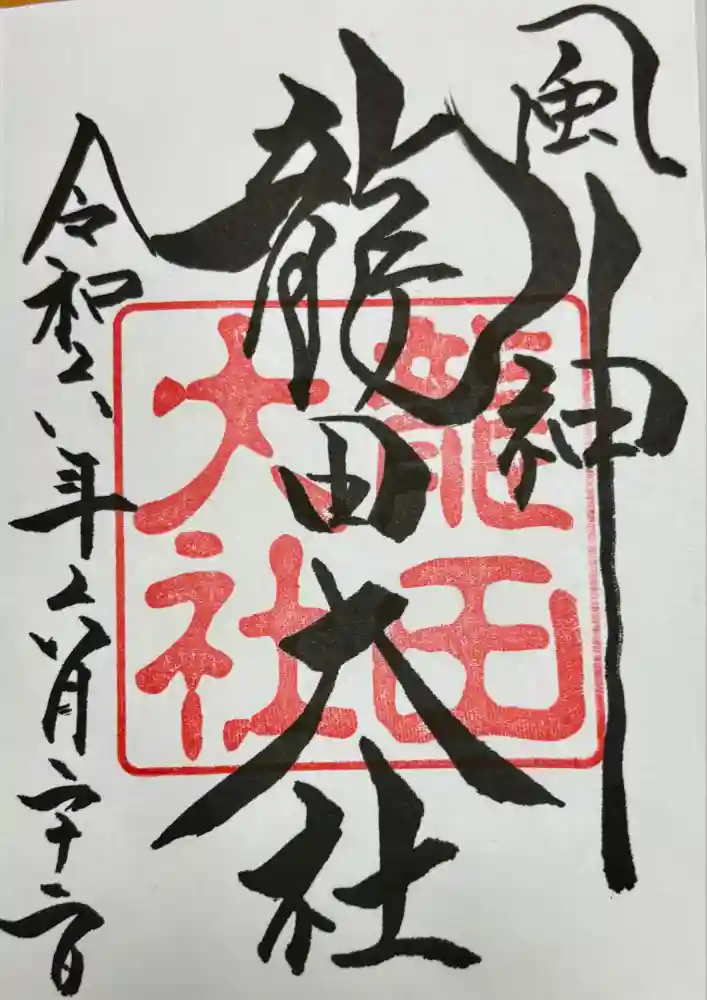 風神
龍田大社
令和六年六月二十二日
龍田
大社